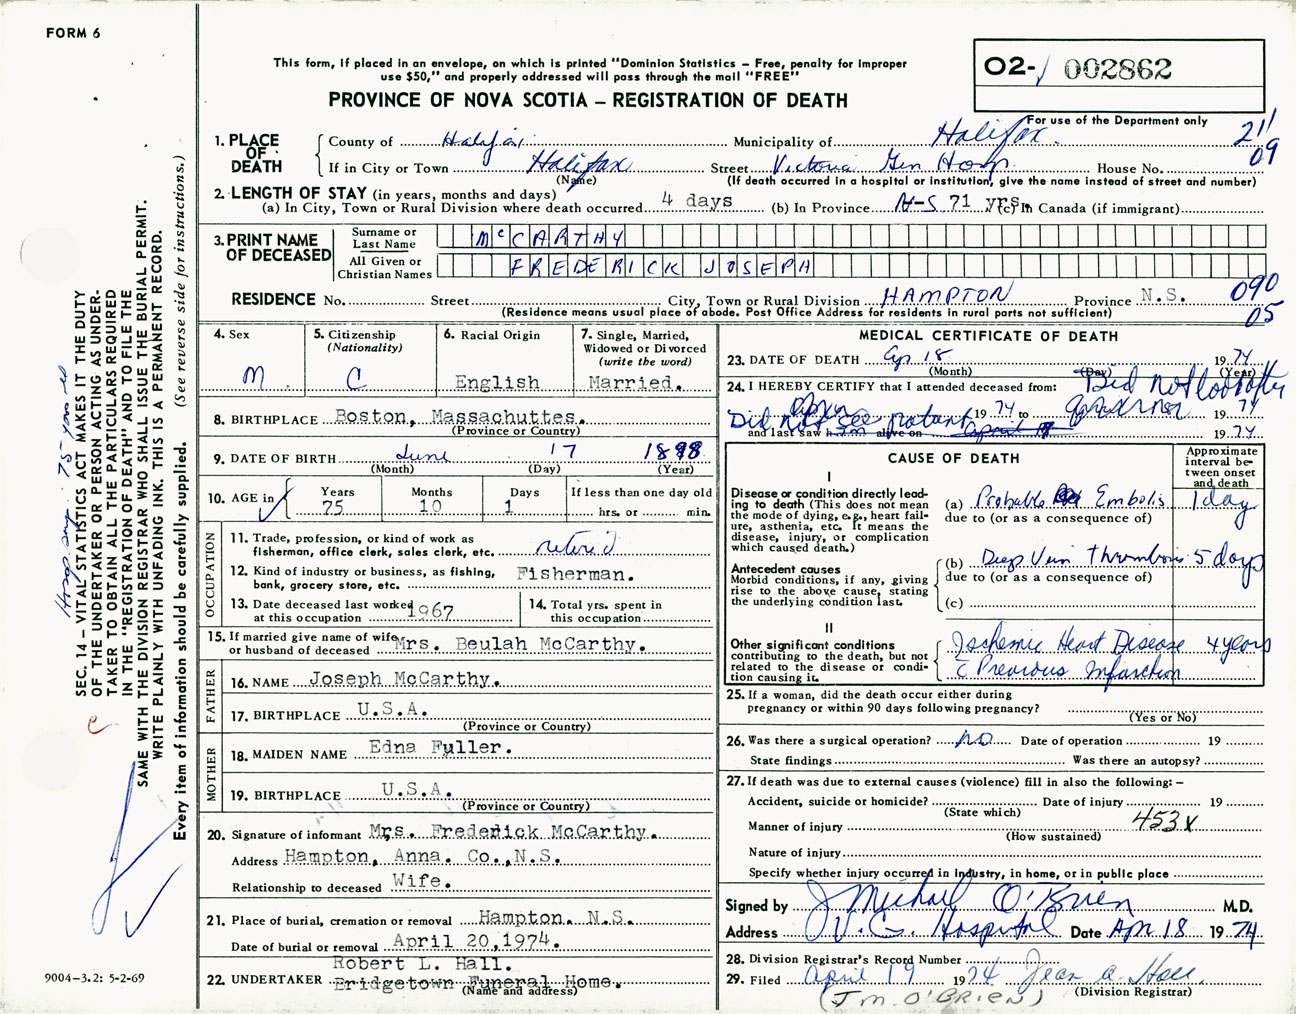 FORM 6
This form, if placed in an envelope, on which is printed "Dominion Statistics – Free, penalty for improper
use $50," and properly addressed will pass through the mail "FREE"
PROVINCE OF NOVA SCOTIA – REGISTRATION OF DEATH
02- 002862
For use of the Department only
211
09
1. PLACE OF DEATH
County of Halifax Municipality of Halifax.
If in City or Town Halifax Street Victoria Gen Hosp. House No.
(Name) (If death occurred in a hospital or institution, give the name instead of street and number)
2. LENGTH OF STAY (in years, months and days)
(a) In City, Town or Rural Division where death occurred 4 days (b) In Province N-S 71 yrs. (c) In Canada (if immigrant)
3. PRINT NAME OF DECEASED
Surname or Last Name McCARTHY
All Given or Christian Names FREDERICK JOSEPH
RESIDENCE No. Street City, Town or Rural Division HAMPTON Province N.S.
(Residence means usual place of abode. Post Office Address for residents in rural parts not sufficient)
090
05
4. Sex M.
5. Citizenship (Nationality) C
6. Racial Origin English
7. Single, Married, Widowed or Divorced (write the word) Married.
8. BIRTHPLACE Boston, Massachuttes.
(Province or Country)
9. DATE OF BIRTH June 17 1898
(Month) (Day) (Year)
10. AGE in Years 75 Months 10 Days 1 If less than one day old
hrs. or min.
OCCUPATION
11. Trade, profession, or kind of work as
fisherman, office clerk, sales clerk, etc. retired
12. Kind of industry or business, as fishing,
bank, grocery store, etc. Fisherman.
13. Date deceased last worked
at this occupation 1967
14. Total yrs. spent in
this occupation
15. If married give name of wife
or husband of deceased Mrs. Beulah McCarthy.
FATHER
16. NAME Joseph McCarthy.
17. BIRTHPLACE U.S.A.
(Province or Country)
MOTHER
18. MAIDEN NAME Edna Fuller.
19. BIRTHPLACE U.S.A.
(Province or Country)
20. Signature of informant Mrs. Frederick McCarthy.
Address Hampton, Anna. Co., N.S.
Relationship to deceased Wife.
21. Place of burial, cremation or removal Hampton. N.S.
Date of burial or removal April 20, 1974.
Robert L. Hall.
22. UNDERTAKER Bridgetown Funeral Home.
(Name and address)
MEDICAL CERTIFICATE OF DEATH
23. DATE OF DEATH Apr 18 1974
(Month) (Day) (Year)
24. I HEREBY CERTIFY that I attended deceased from: Did not look after
19 74 to 19 74
Did not see patient
and last saw him alive on April 19 74
CAUSE OF DEATH
Approximate interval between onset and death
I
Disease or condition directly leading to death (This does not
mean the mode of dying, e.g., heart failure, asthenia, etc. It means the
disease, injury, or complication
which caused death.)
(a) Probable Embolis 1 day
due to (or as a consequence of)
Antecedent causes
Morbid conditions, if any, giving
rise to the above cause, stating
the underlying condition last.
(b) Deep Vein Thrombosis 5 days
due to (or as a consequence of)
(c)
II
Other significant conditions
contributing to the death, but not
related to the disease or condition causing it.
Ischemic Heart Disease 4 years
c̄ Previous Infarction
25. If a woman, did the death occur either during
pregnancy or within 90 days following pregnancy?
(Yes or No)
26. Was there a surgical operation? NO Date of operation 19
State findings Was there an autopsy?
27. If death was due to external causes (violence) fill in also the following: –
Accident, suicide or homicide? Date of injury 19
(State which)
Manner of injury 453X
(How sustained)
Nature of injury
Specify whether injury occurred in industry, in home, or in public place
Signed by J Michael O'Brien M.D.
Address V.G. Hospital Date Apr 18 1974
28. Division Registrar's Record Number
29. Filed April 19 1974 Jean A. Hall
(Division Registrar)
(J M. O'BRIEN)
Hosp. says 75 years old
SEC. 14 – VITAL STATISTICS ACT MAKES IT THE DUTY
OF THE UNDERTAKER OR PERSON ACTING AS UNDER-
TAKER TO OBTAIN ALL THE PARTICULARS REQUIRED
IN THE "REGISTRATION OF DEATH" AND TO FILE THE
SAME WITH THE DIVISION REGISTRAR WHO SHALL ISSUE THE BURIAL PERMIT.
WRITE PLAINLY WITH UNFADING INK. THIS IS A PERMANENT RECORD.
Every item of information should be carefully supplied. (See reverse side for instructions.)
C
9004-3.2: 5-2-69